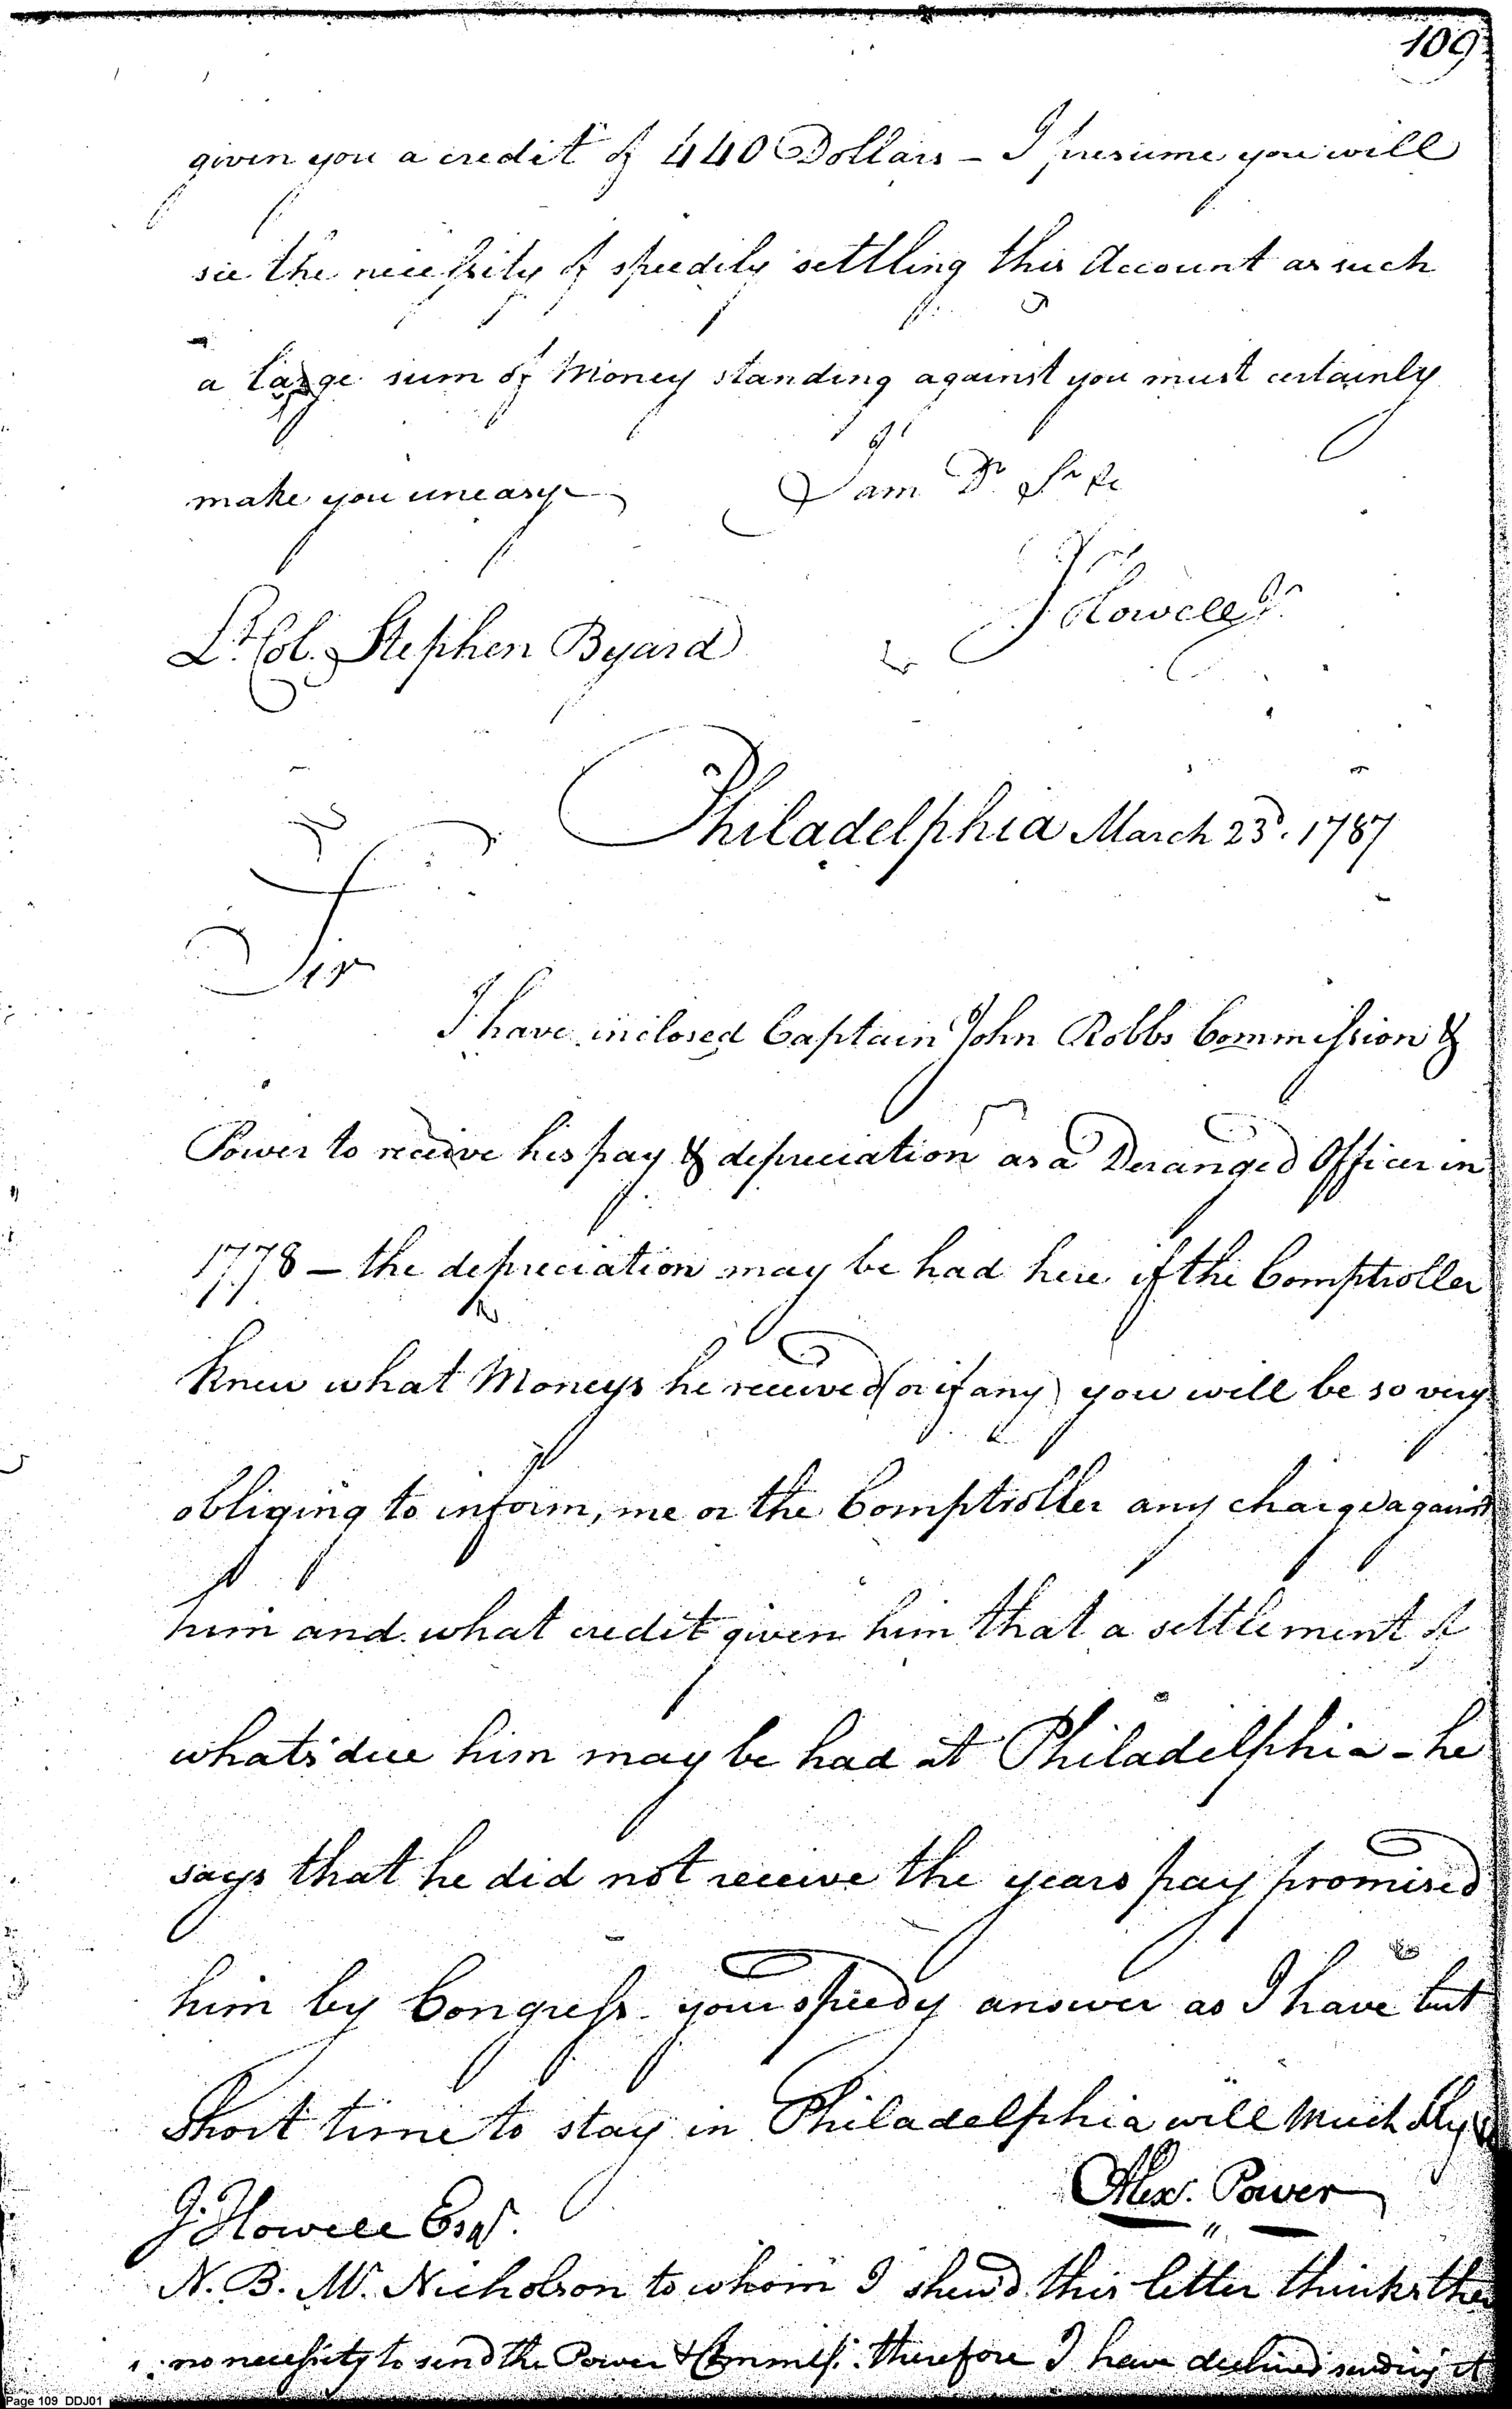 109
given you a credit of 440 Dollars – I presume you will
see the necessity of speedily settling this Account as such
a large sum of Money standing against you must certainly
make you uneasy I am Dr Sr &c
J Howell Jr.
Lt. Col. Stephen Byard
Philadelphia March 23d. 1787
Sir
I have inclosed Captain John Robbs Commission &
Power to receive his pay & depreciation as a Deranged Officer in
1778 – the depreciation may be had here if the Comptroller
knew what Moneys he received (or if any) you will be so very
obliging to inform, me or the Comptroller any charge against
him and what credit given him that a settlement of
whats due him may be had at Philadelphia – he
says that he did not receive the years pay promised
him by Congress – your speedy answer as I have but
short time to stay in Philadelphia will much
Alexr. Power
J. Howell Esqr.
N. B. Mr. Nicholson to whom I shew'd this letter thinks
no necessity to send the Power & Commiss: therefore I have declined sending it
Page 109 DDJ01